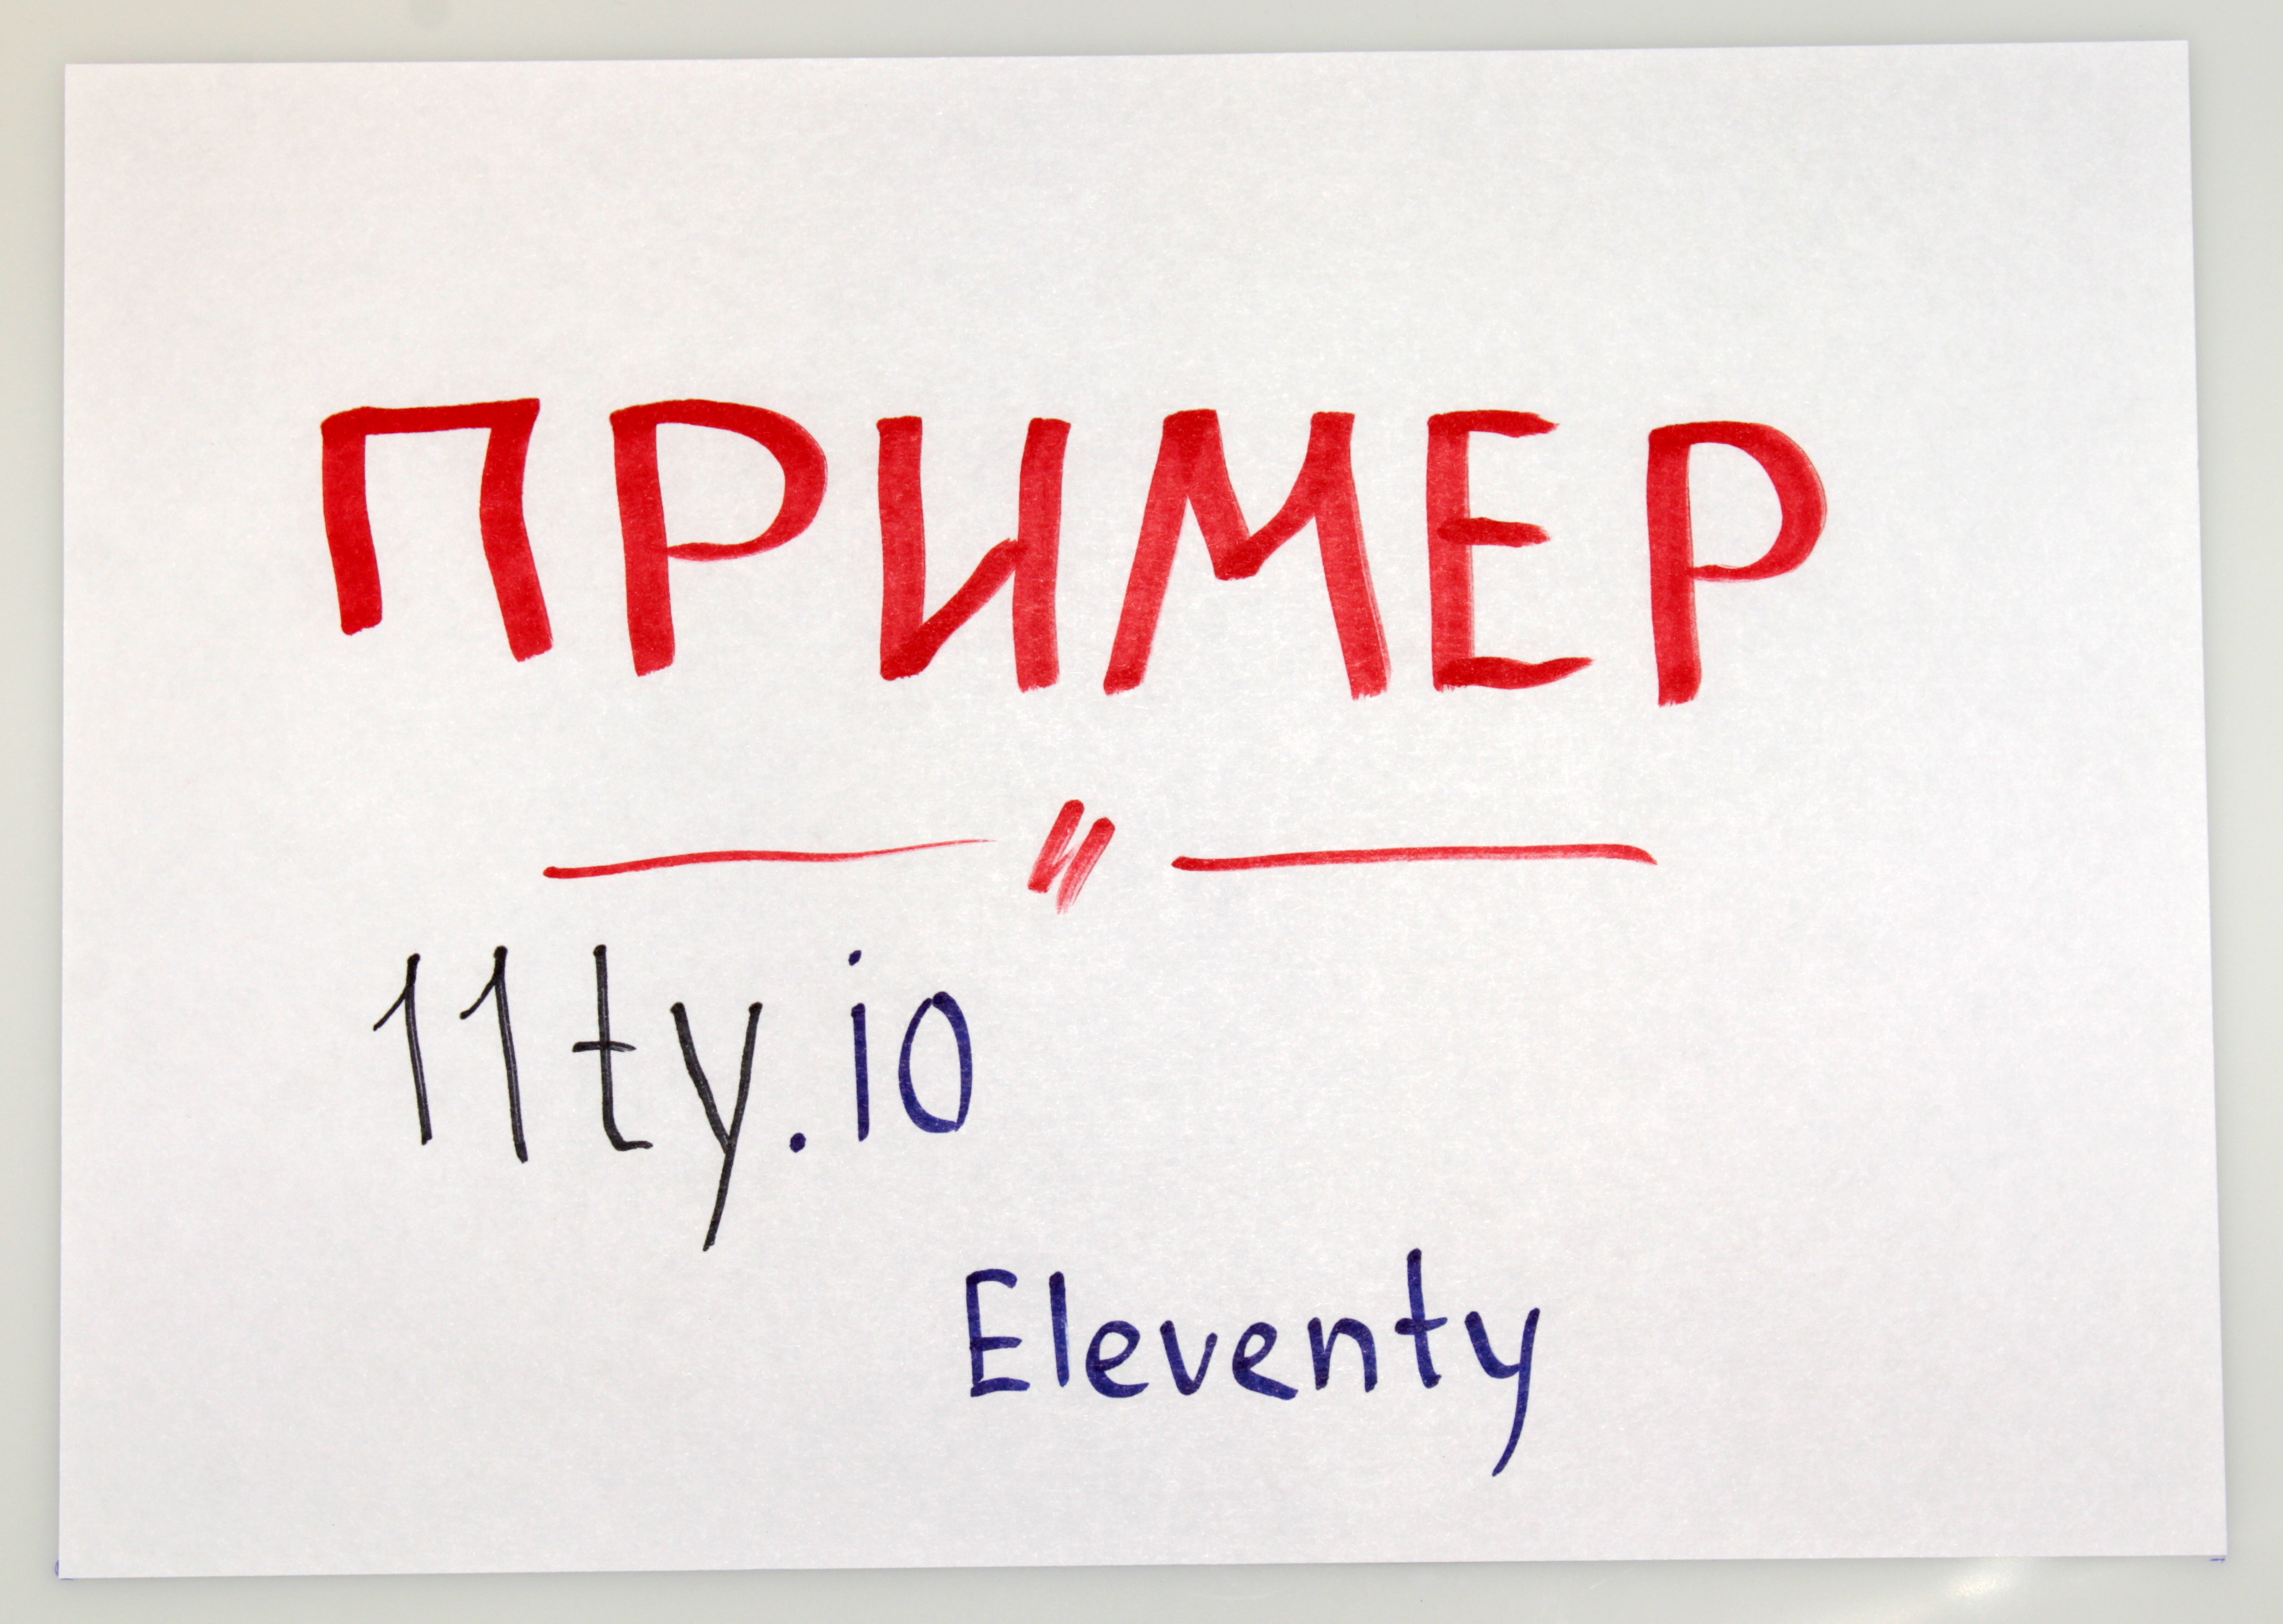 ПРИМЕР
11ty.io
Eleventy